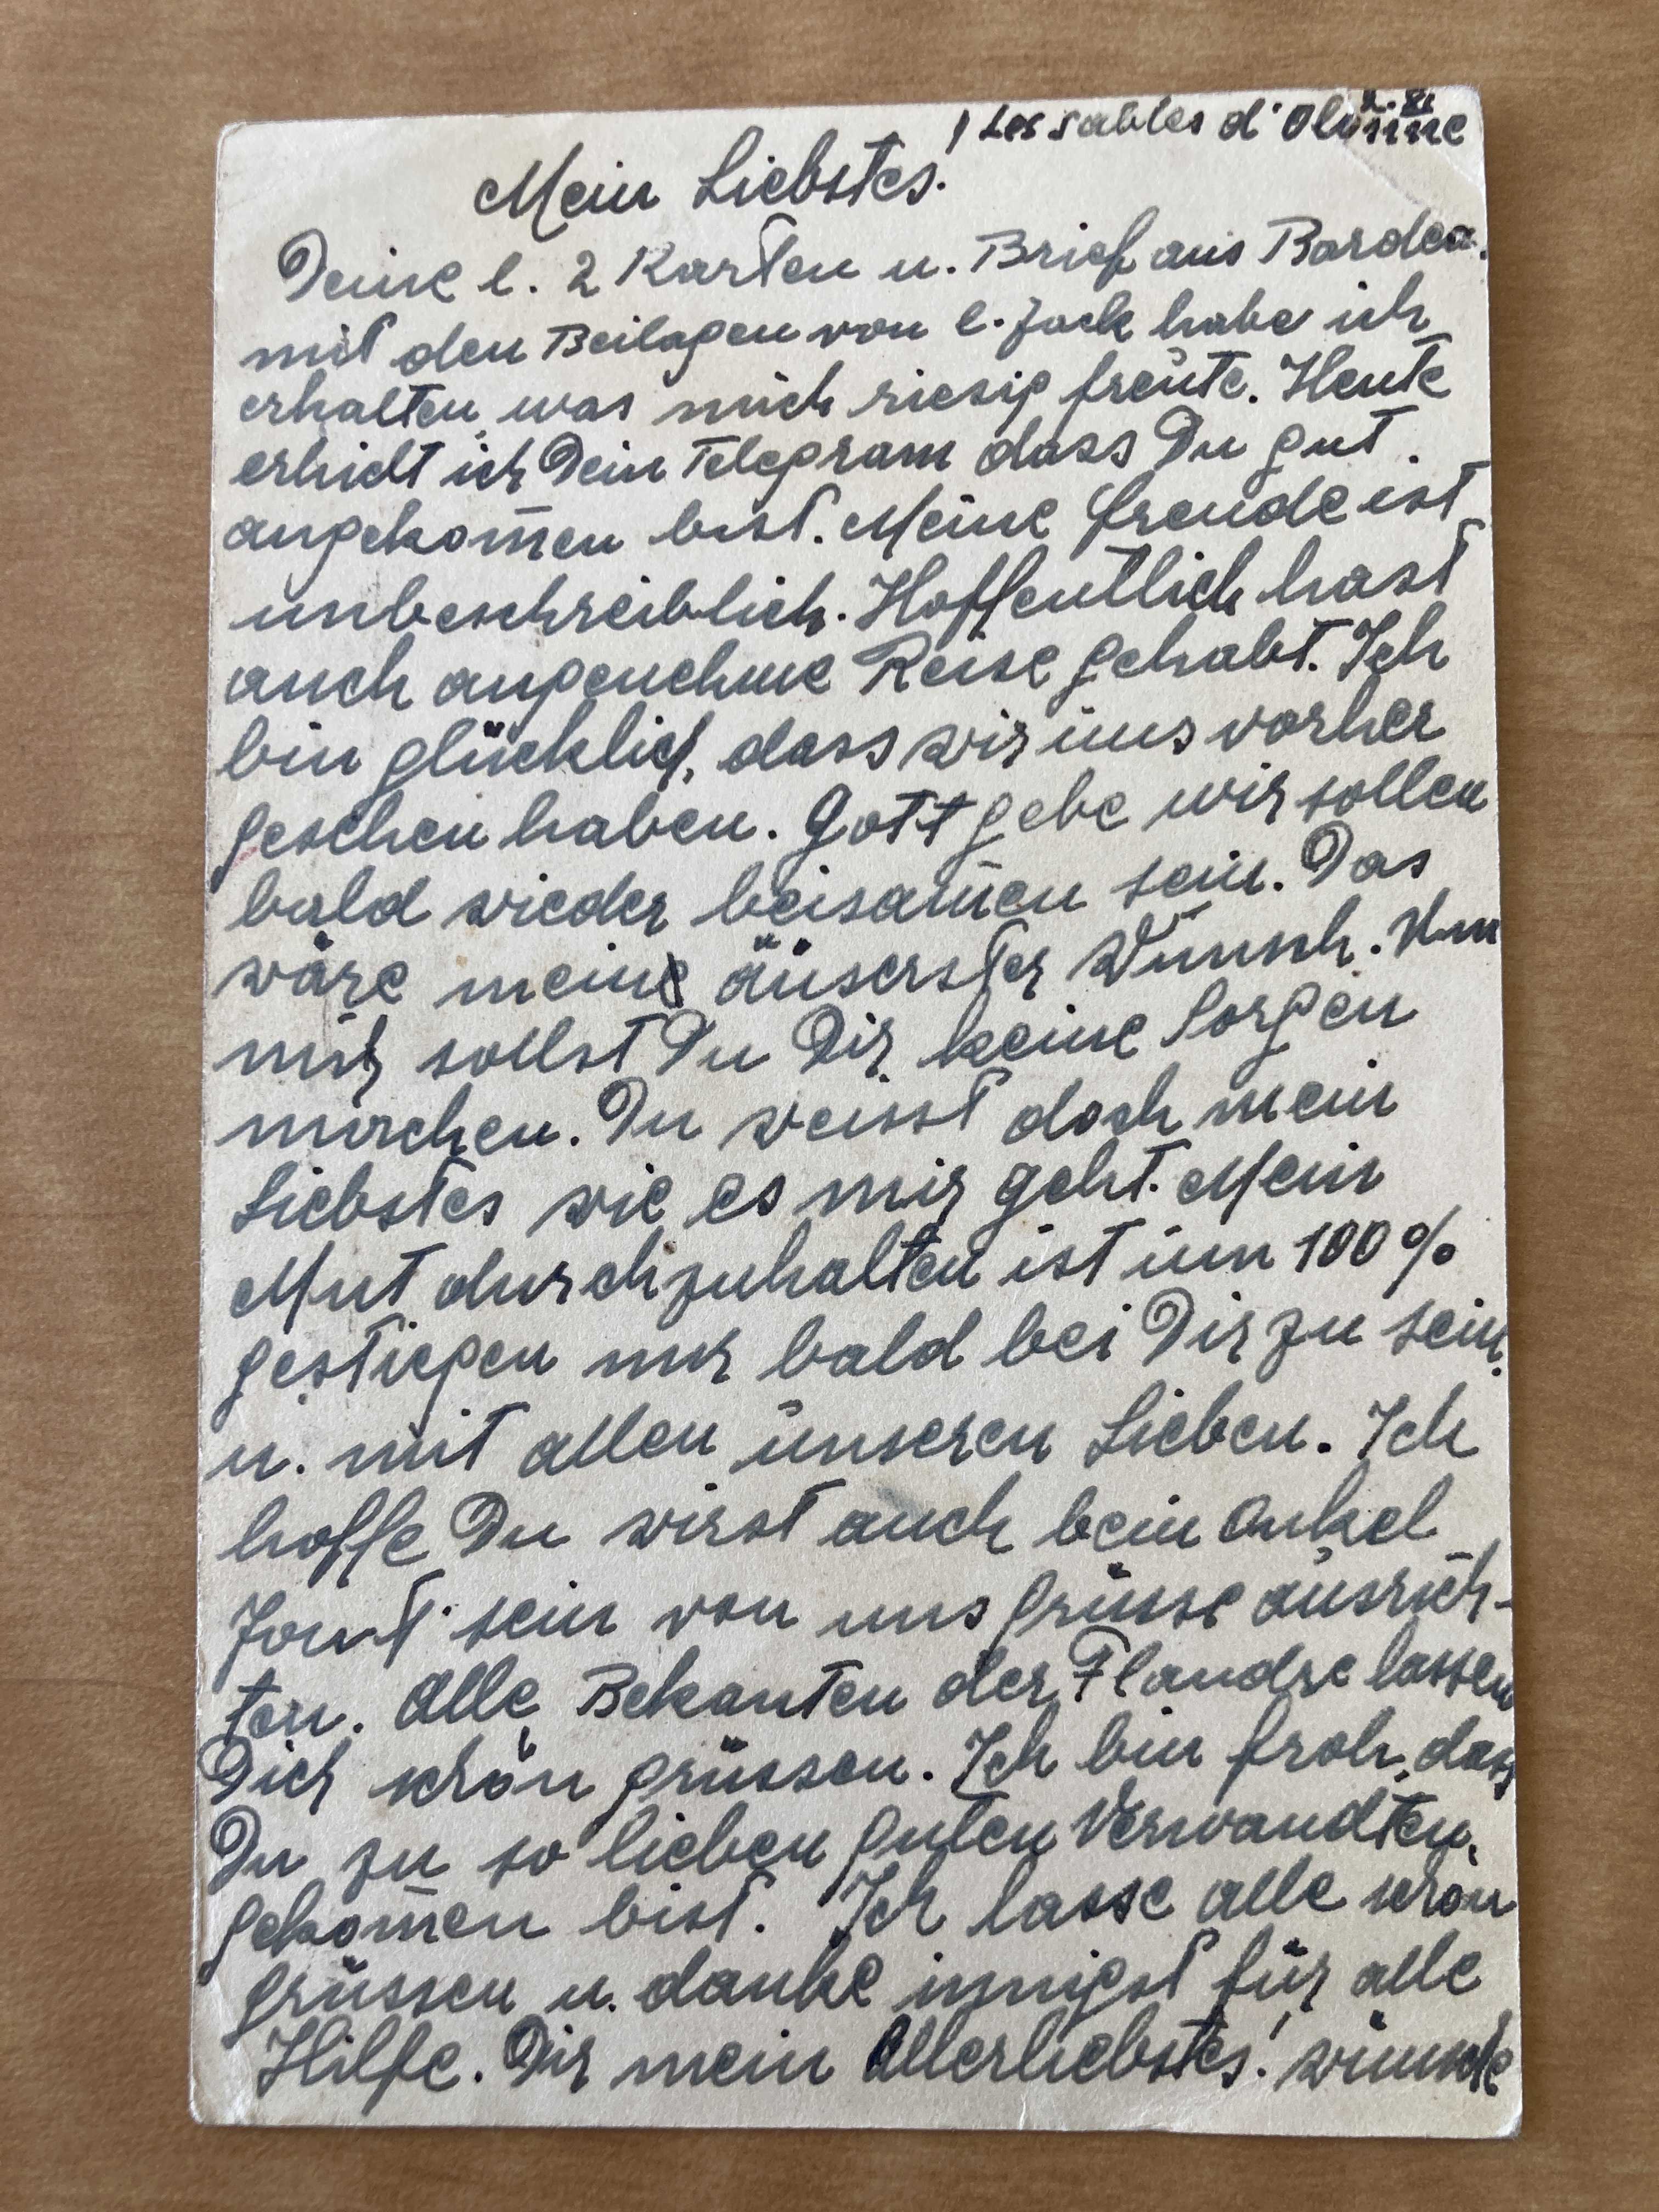 2. XI
Les sables d'Olonne
Mein Liebstes!
Deine l. 2 Karten u. Brief aus Bordea.
mit den Beilagen von l. Jack habe ich
erhalten was mich riesig freute. Heute
erhielt ich Dein Telegram dass Du gut
angekom̄en bist. Meine Freude ist
unbeschreiblich. Hoffentlich hast
auch angenehme Reise gehabt. Ich
bin glücklich, dass wir uns vorher
gesehen haben. Gott gebe wir sollen
bald wieder beisam̄en sein. Das
wäre mein äuserster Wunsch. Um
mich sollst Du Dir keine Sorgen
machen. Du weisst doch mein
Liebstes wie es mir geht. Mein
Mut durchzuhalten ist um 100%
gestiegen nur bald bei Dir zu sein.
u. mit allen unseren Lieben. Ich
hoffe Du wirst auch beim Onkel
sein von uns Grüsse ausrich-
ten. Alle Bekanten der Flandre lassen
Dich schön grüssen. Ich bin froh, dass
Du zu so lieben guten Verwandten
gekom̄en bist. Ich lasse alle schön
grüssen u. danke innigst für alle
Hilfe. Dir mein Allerliebstes! wünsche